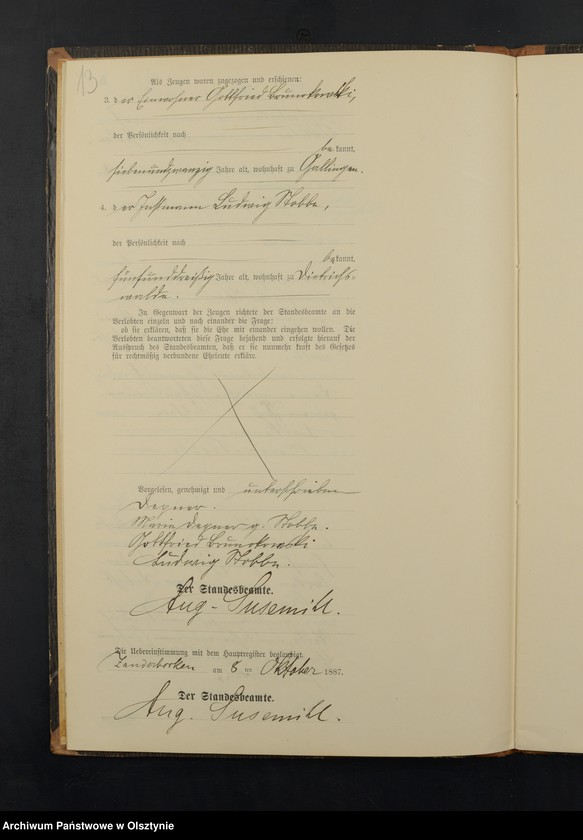 13
Als Zeugen waren zugezogen und erschienen:
3. der Einwohner Gottfried Brunokowski,
der Persönlichkeit nach
bekannt,
siebenundzwanzig Jahre alt, wohnhaft zu Gallingen.
4. der Instmann Ludwig Stobbe,
der Persönlichkeit nach
bekannt,
fünfunddreißig Jahre alt, wohnhaft zu Dietrichs-
walde.
In Gegenwart der Zeugen richtete der Standesbeamte an die
Verlobten einzeln und nach einander die Frage:
ob sie erklären, daß sie die Ehe mit einander eingehen wollen. Die
Verlobten beantworteten diese Frage bejahend und erfolgte hierauf der
Ausspruch des Standesbeamten, daß er sie nunmehr kraft des Gesetzes
für rechtmäßig verbundene Eheleute erkläre.
Vorgelesen, genehmigt und unterschrieben
Degner.
Maria Degner g. Stobbe.
Gottfried Brunokowski
Ludwig Stobbe.
Der Standesbeamte.
Aug. Susemihl.
Die Uebereinstimmung mit dem Hauptregister beglaubigt.
Zandersborken am 8 ten Oktober 1887.
Der Standesbeamte.
Aug. Susemihl.
Archiwum Państwowe w Olsztynie